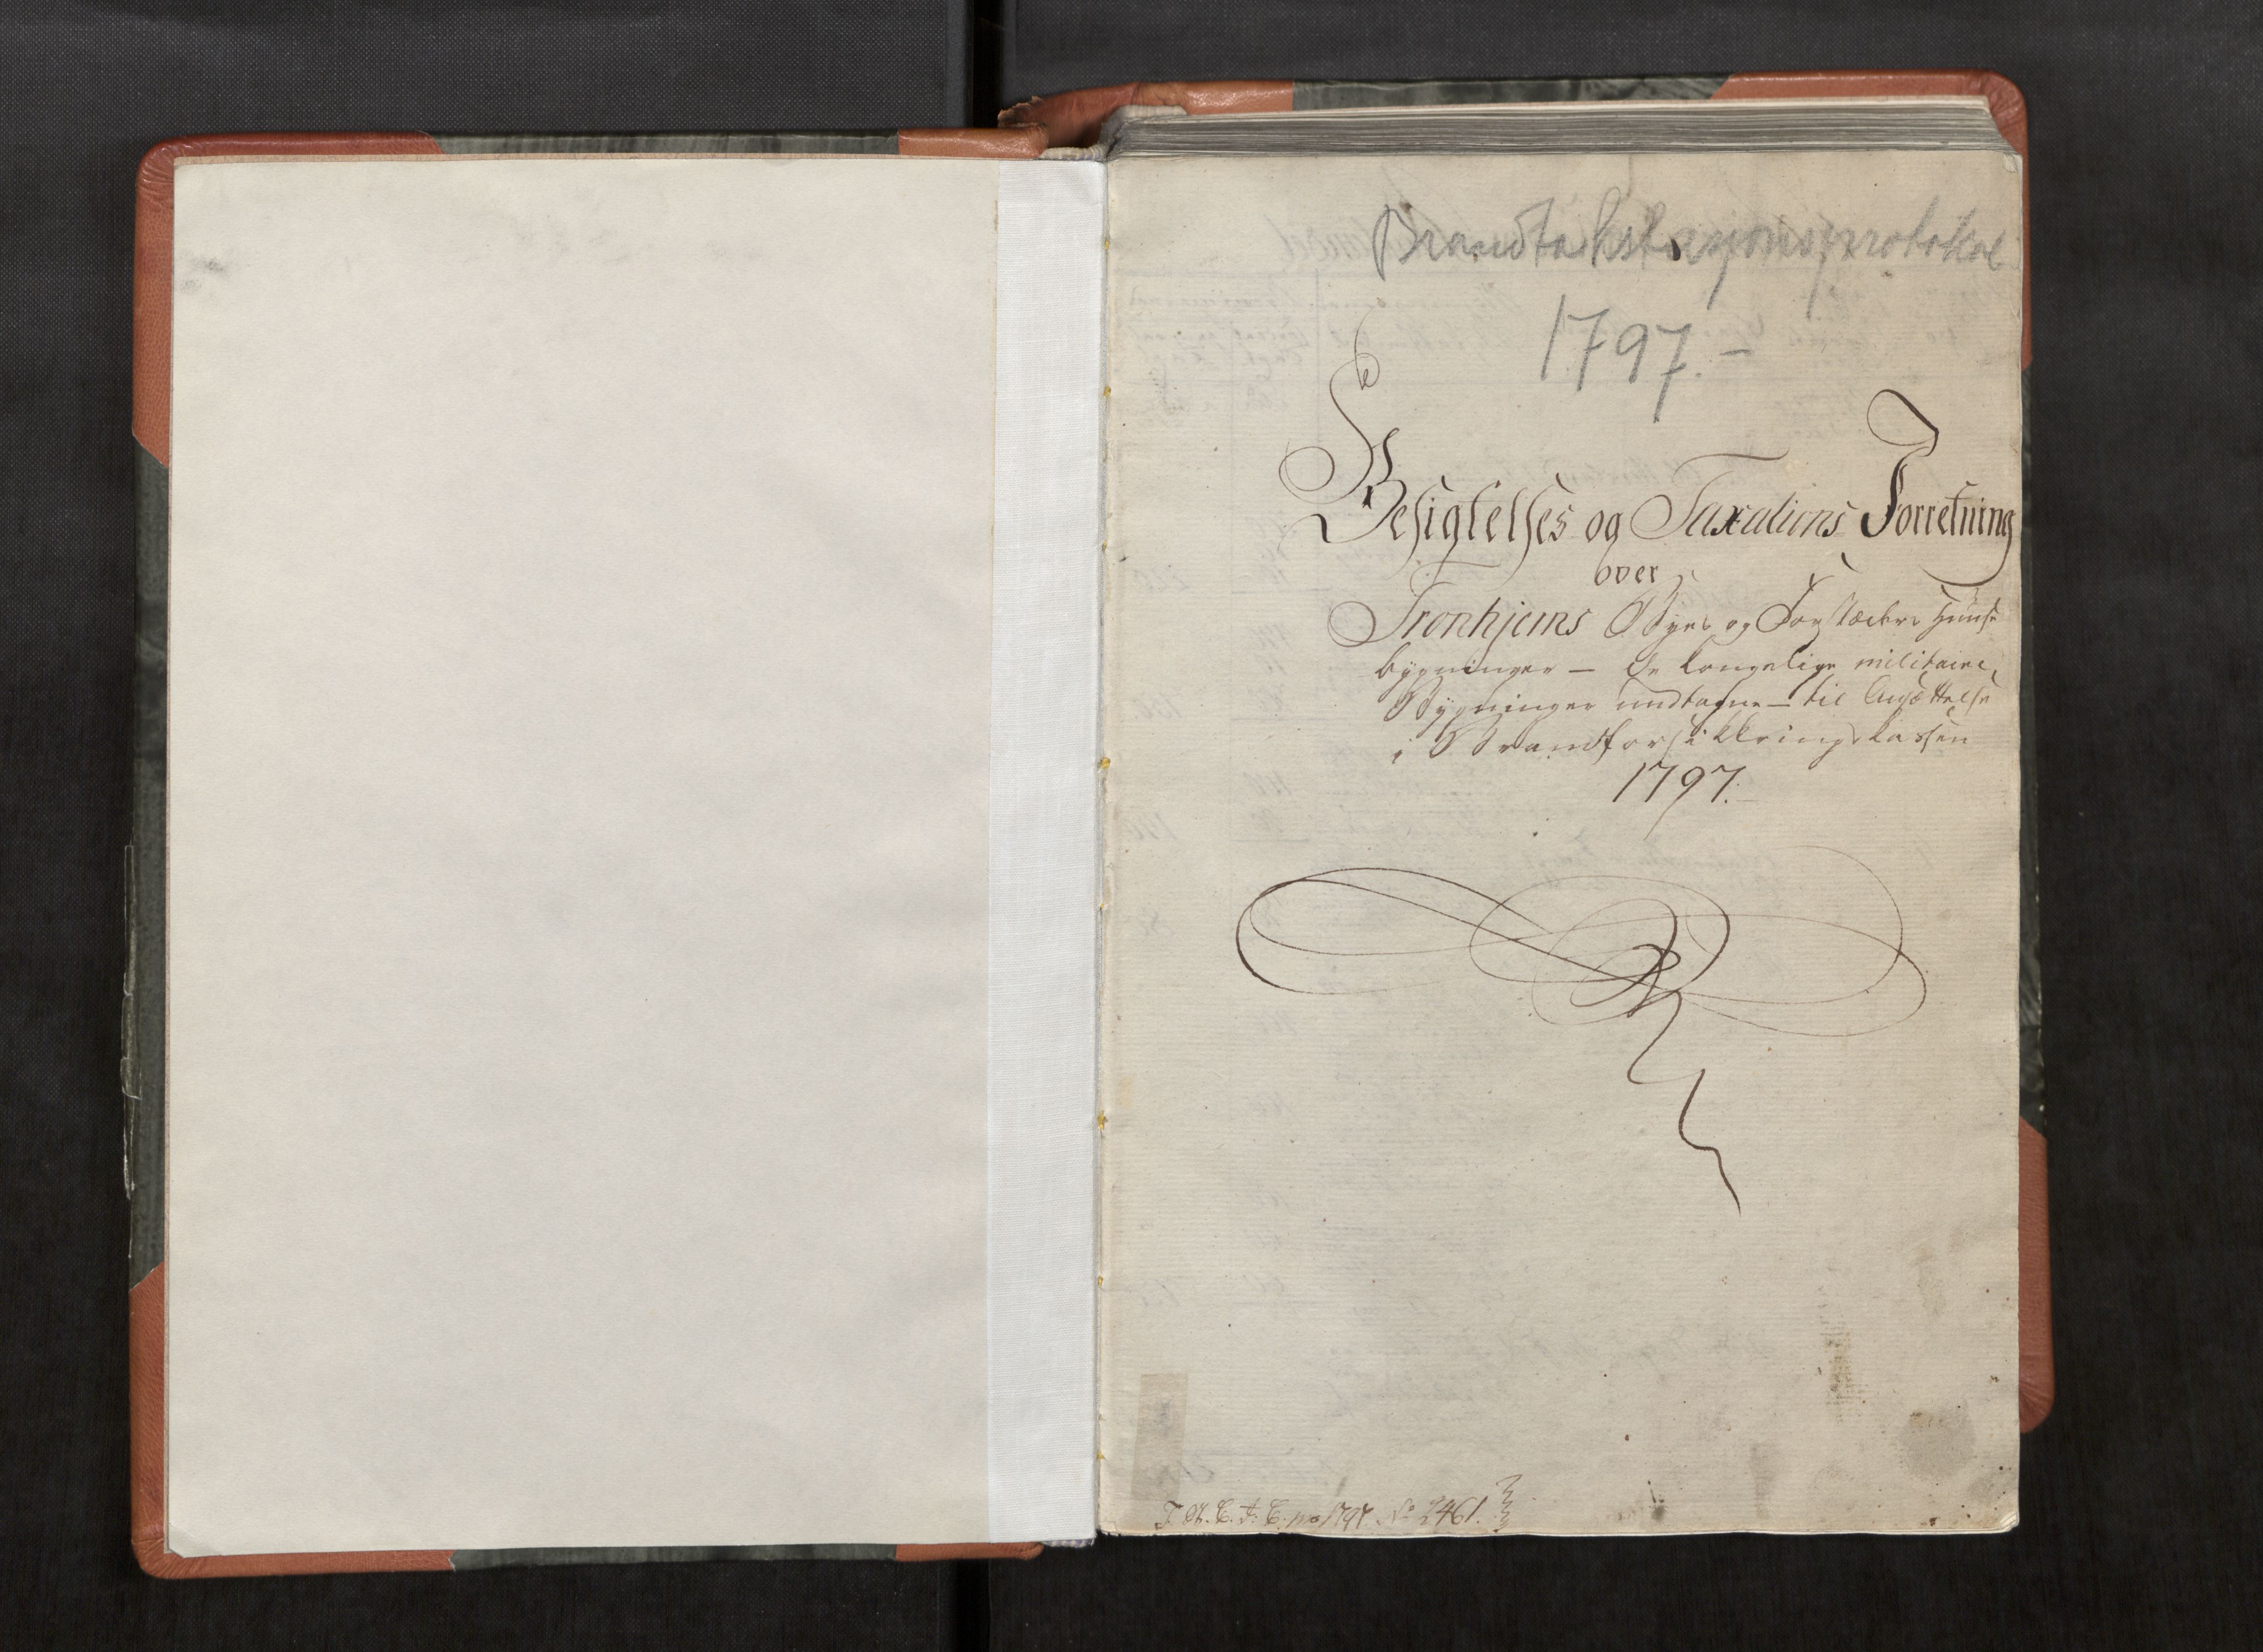 Brandtakstasjonsprotokol
1797.-
Besigtelses og Taxations Forretning
over
Tronhjems Byes og Forstæders Huuse
bygninger — De kongelige militaire
Bygninger undtagne — til Ansættelse
i Brandforsikkringskassen
1797.
T. St. C. F. C. pro 1797. No 2461.